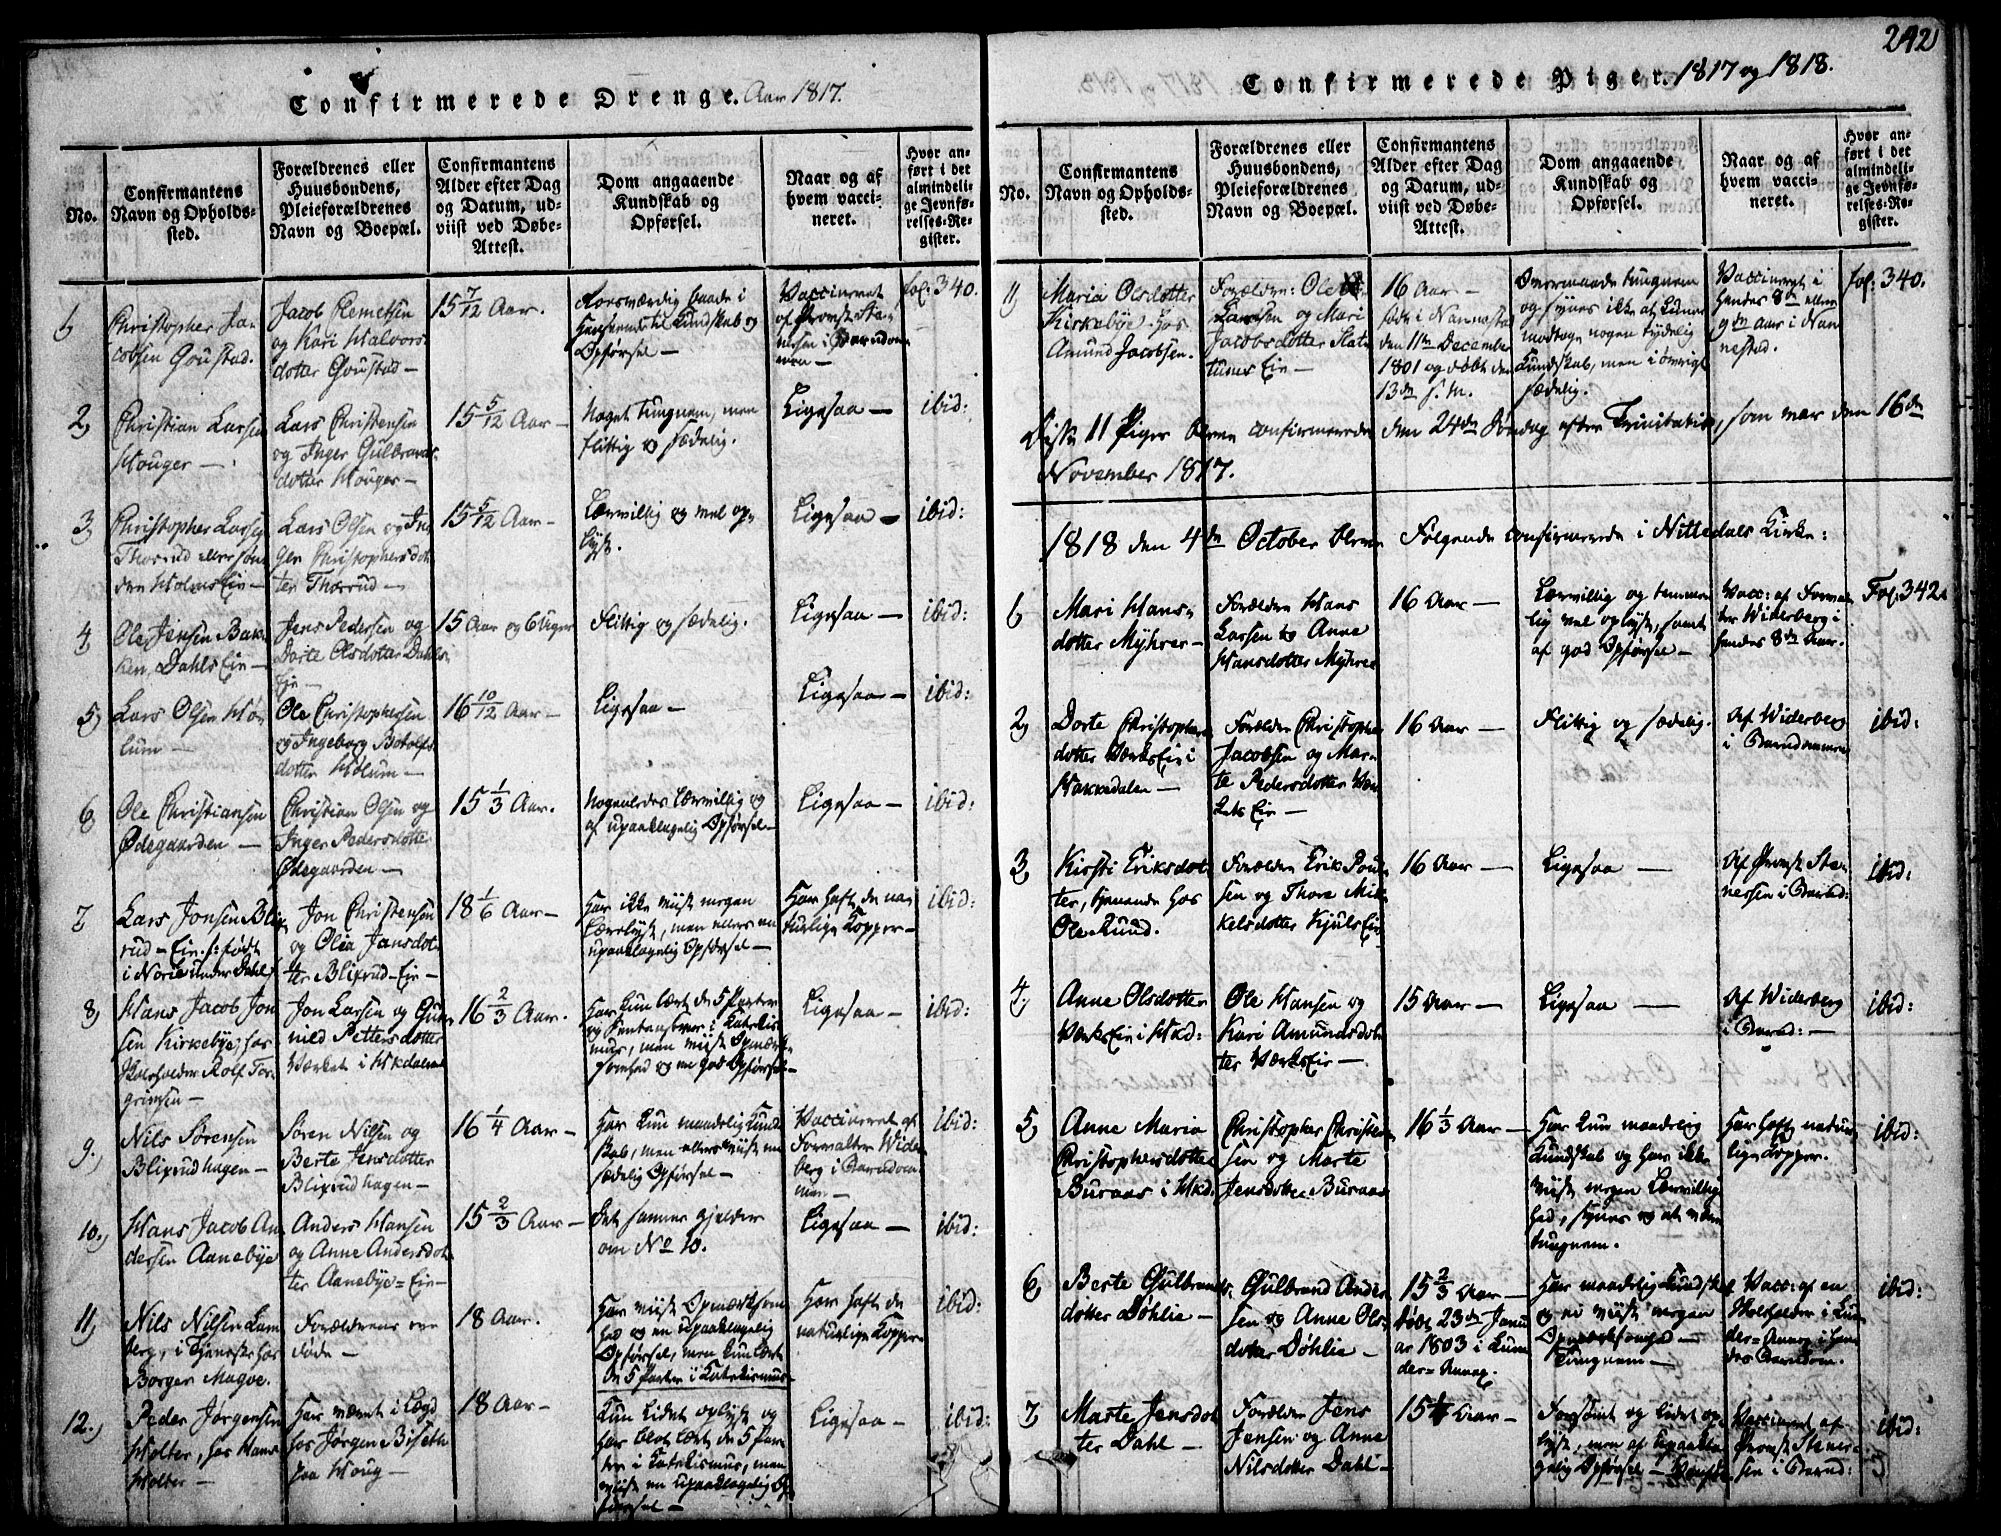 242
Confirmerede Drenge. Aar 1817.
No.
Confirmantens
Navn og Opholds-
sted.
Forældrenes eller
Huusbondens,
Pleieforældrenes
Navn og Boepæl.
Confirmantens
Alder efter Dag
og Datum, ud-
viist ved Døbe-
Attest.
Dom angaaende
Kundskab og
Opførsel.
Naar og af
hvem vacci-
neret.
Hvor an-
ført i det
almindeli-
ge Jevnfø-
relses-Re-
gister.
1,
Christopher Ja-
cobsen Goustad.
Jacob Clemetsen
og Kari Halvors-
dotter Goustad —
15 7/12 Aar.
Roesværdig baade i
Henseende til Kundskab og
Opførsel —
Vaccineret
af Provst Ste-
nersen i Barndom-
men —
fol: 340.
2,
Christian Larsen
Houger —
Lars Christensen
og Inger Gulbrands-
dotter Houger —
15 5/12 Aar —
Noget tungnem, men
flittig og sædelig.
Ligesaa —
ibid:
3,
Christopher Larsen
Thorrud eller Søn-
den Holms Eie —
Lars Olsen og In-
ger Christophersdot-
ter Thorrud —
15 5/12 Aar —
Lærvillig og vel op-
lyst.
Ligesaa —
ibid:
4
Ole Jensen Bak-
ken, Dahls Eie —
Jens Pedersen og
Dorte Olsdotter Dahls-
Eie —
15 Aar og 6 Uger
Flittig og sædelig.
Ligesaa —
ibid:
5,
Lars Olsen Ho-
lum —
Ole Christophersen
og Ingeborg Botolfs-
dotter Holum —
16 10/12 Aar —
Ligesaa —
Ligesaa —
ibid:
6,
Ole Christiansen
Ødegaarden —
Christian Olsen og
Inger Pedersdotter
Ødegaarden —
15 1/3 Aar.
Nogenledes lærvillig og
af upaaklagelig Opførsel —
Ligesaa —
ibid:
7,
Lars Jonsen Blix-
rud-Eie født
i Norie under Dahl
Jon Christensen
og Olia Jansdot-
ter Blixrud-Eie —
18 1/6 Aar —
Har ikke viist megen
Lærelyst, men ellers en
upaaklagelig Opførsel —
Har havt de na-
turlige Kopper —
ibid:
8,
Hans Jacob Jon-
sen Kirkebye, hos
Rolf Tor-
grimsen —
Jon Larsen og Gun-
nild Pettersdotter
Værket i Hakdalen
16 2/3 Aar.
Har kun lært de 5 Parter
i Katekis-
mus, men viist Opmærk-
somhed og en god Opførsel —
Ligesaa —
ibid:
9.,
Nils Sørensen
Blixrudhagen —
Søren Nilsen og
Berte Jensdotter
Blixrudhagen —
16 1/4 Aar —
Har kun maadelig Kund-
skab, men ellers viist en
sædelig Opførsel —
Vaccineret af
Forvalter Wider-
berg i Barndom-
men —
ibid:
10.,
Hans Jacob An-
dersen Aanebye
Anders Hansen
og Anne Andersdot-
ter Aanebye-Eie —
15 2/3 Aar —
Det samme gjelder
om No 10.
Ligesaa —
ibid:
11,
Nils Nilsen Lam-
berg, i Tjeneste hos
Borger Magve.
Forældrene ere
døde —
18 Aar.
Har viist Opmærksom-
hed og en upaaklagelig
Opførsel, men kun lært
de 5 Parter i Katekismus —
Har havt de
naturlige Kopper
ibid:
12.,
Peder Jørgensen
Holter, hos Hans
Holter —
Har været i Lægd
hos Jørgen Biseth
paa Houg —
18 Aar —
Kun lidet oplyst og
har blot lært de 5 Par-
ter i Katekismus, men
viist en upaaklagelig Op-
førsel —
Ligesaa —
ibid:
Confirmerede Piger. 1817 og 1818.
No.
Confirmantens
Navn og Opholds-
sted.
Forældrenes eller
Huusbondens,
Pleieforældrenes
Navn og Boepæl.
Confirmantens
Alder efter Dag
og Datum, ud-
viist ved Døbe-
Attest.
Dom angaaende
Kundskab og
Opførsel.
Naar og af
hvem vacci-
neret.
Hvor an-
ført i det
almindeli-
ge Jevnfø-
relses-Re-
gister.
11,
Maria Olsdotter
Kirkebye hos
Amund Jacobsen.
Forældre: Ole
Larsen og Mari
Jacobsdotter Slat-
tums Eie —
16 Aar —
født i Nannestad
den 11te December
1801 og døbt den
13de s. M.
Overmaade tungnem
og synes ikke at kunne
modtage nogen tydelig
Kundskab, men i øvrigt
sædelig.
Vaccineret i
hendes 8de eller
9de Aar i Nan-
nestad.
fol: 340.
Disse 11 Piger bleve confirmerede den 24de Søndag efter Trinitatis, som var den 16de
November 1817.
1818 den 4de October bleve Følgende confirmerede i Nittedals Kirke:
1,
Mari Hans-
dotter Myhrer —
Forældre Hans
Larsen og Anne
Hansdotter Myhrer
16 Aar —
Lærvillig og temme-
lig vel oplyst, samt
af god Opførsel —
Vacc: af Forval-
ter Widerberg i
hendes 8de Aar.
Fol. 342.
2,
Dorte Christophers-
dotter Værks Eie i
Hakkedalen —
Forældre Christopher
Jacobsen og Mar-
te Pedersdotter Vær-
kets Eie —
16 Aar —
Flittig og sædelig.
Af Widerberg
i Barndommen
ibid:
3,
Kirsti Eriksdot-
ter, tjenende hos
Ole Rund.
Forældre Erik Poul-
sen og Thore Mik-
kelsdotter Kjuls Eie
16 Aar —
Ligesaa —
Af Provst Ste-
nersen i Barnd:
ibid:
4,
Anne Olsdotter
Værks Eie i Hkd:
Ole Hansen og
Kari Amundsdot-
ter Værks Eie —
15 Aar —
Ligesaa —
Af Widerberg
i Barnd: —
ibid:
5,
Anne Maria
Christophersdotter
Buraas i Hkd.
Christopher Christen-
sen og Marte
Jensdotter Buraas
16 1/3 Aar —
Har kun maadelig
Kundskab og har ikke
viist megen Lærvillig-
hed, synes og at være
tungnem.
Har havt natur-
lige Kopper.
ibid:
6,
Berte Gulbrands-
dotter Døhlie —
Gulbrand Ander-
sen og Anne Ols-
dotter Døhlie —
15 2/3 Aar —
født 23de Janu-
ar 1803 i Lun-
der-Annex.
Har maadelig Kundskab
og ei viist megen
Opmærksomhed —
Tungnem —
Vacc: af en
i Lun-
der-Annex i hen-
des Barndom.
ibid:
7,
Marte Jensdot-
ter Dahl —
Forældre Jens
Jensen og Anne
Nilsdotter Dahl —
15 Aar —
Forsømt og lidet op-
lyst, men af upaakla-
gelig Opførsel —
Vaccineret af
Provst Stener-
sen i Barnd:
ibid: